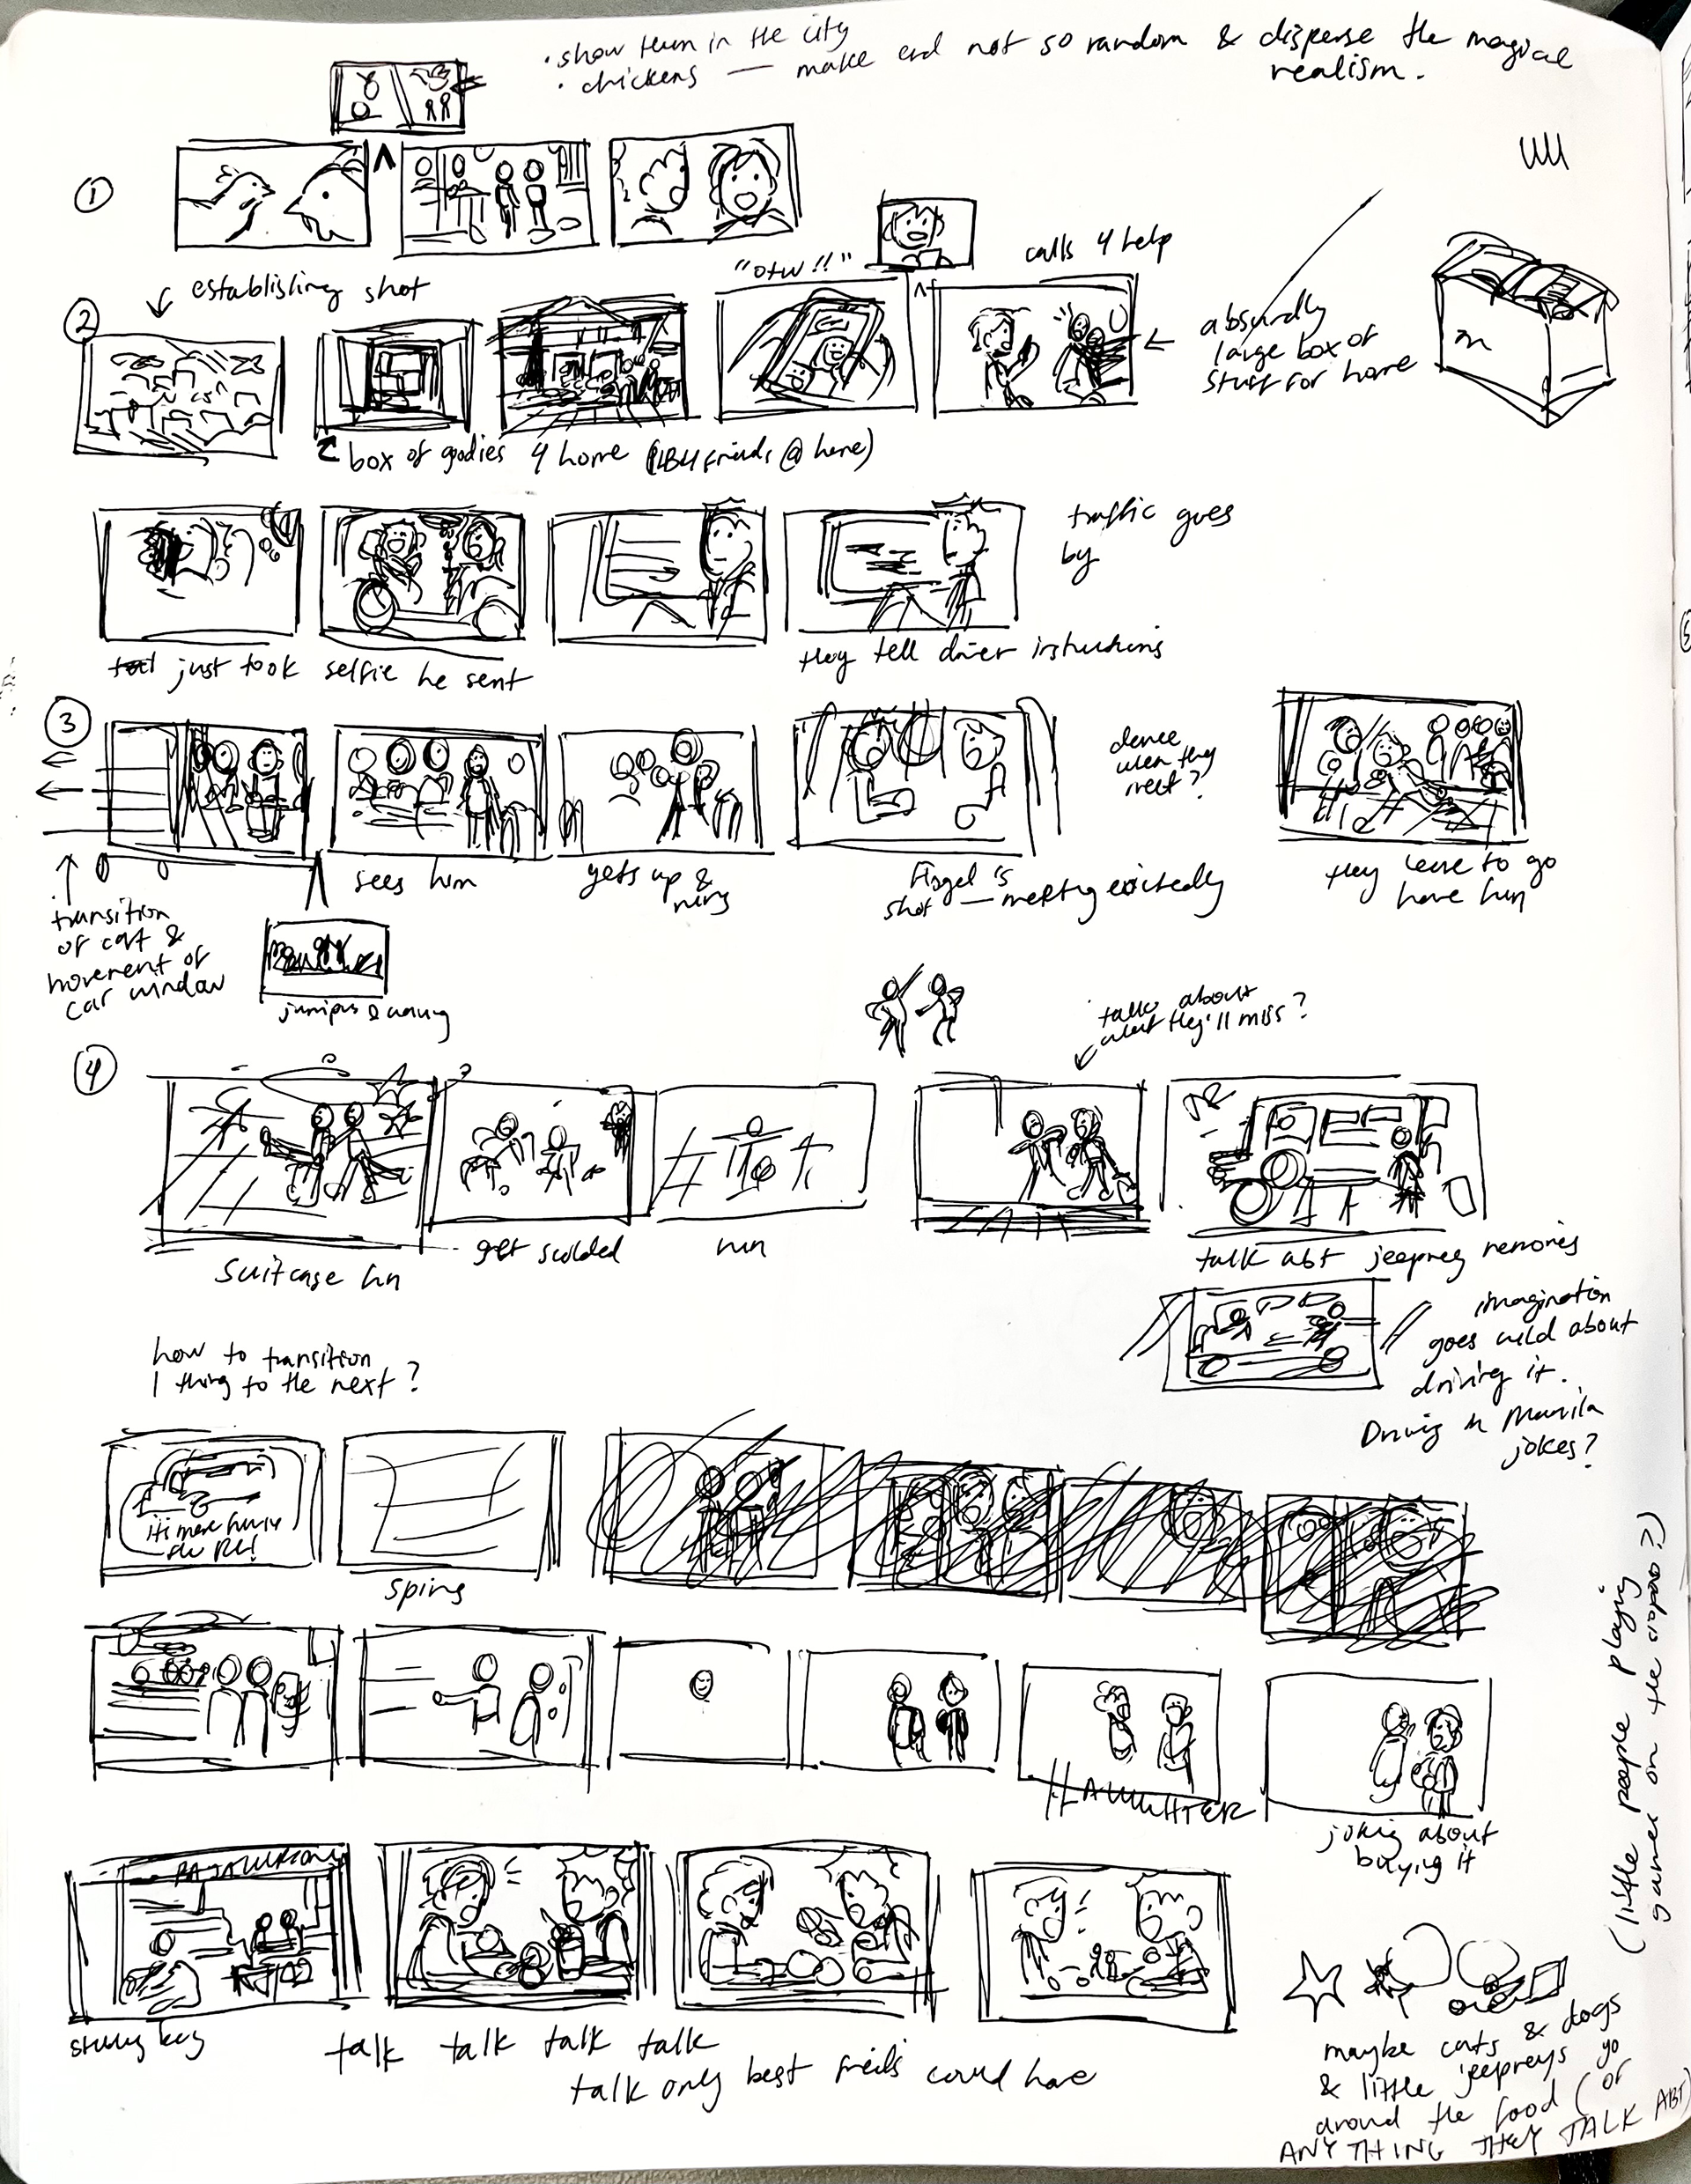 • show them in the city
• chickens — make end not so random & disperse the magical
realism.
①
"otw !!"
calls 4 help
establishing shot
②
absurdly
large box of
stuff for home
box of goodies 4 home ( friends @ home)
traffic goes
by
just took selfie he sent
they tell driver instructions
③
dance
when they
meet?
sees him
gets up &
runs
shot — meeting excitedly
they leave to go
have fun
transition
of cart &
movement of
car window
jumping & waving
talk about
what they'll miss?
④
suitcase fun
get scolded
run
talk abt jeepney memories
imagination
goes wild about
driving it.
Driving in Manila
jokes?
how to transition
1 thing to the next?
it's more funny
spins
LAUGHTER
joking about
buying it
talk talk talk talk
talk only best friends could have
maybe cats & dogs
& little jeepneys go
around the food (or
ANYTHING THEY TALK ABT)
(little people playing
games on the ?)